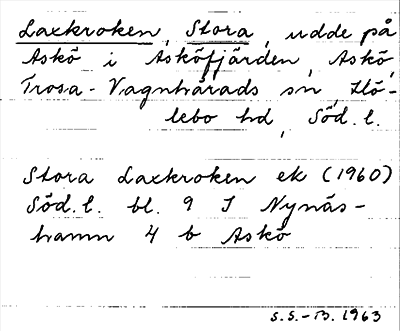 Laxkroken, Stora, udde på
Askö i Asköfjärden, Askö,
Trosa-Vagnhärads sn, Hö-
lebo hd, Söd.l.
Stora Laxkroken ek (1960)
Söd.l. bl. 9 I Nynäs-
hamn 4 b Askö
S.S.-B. 1963